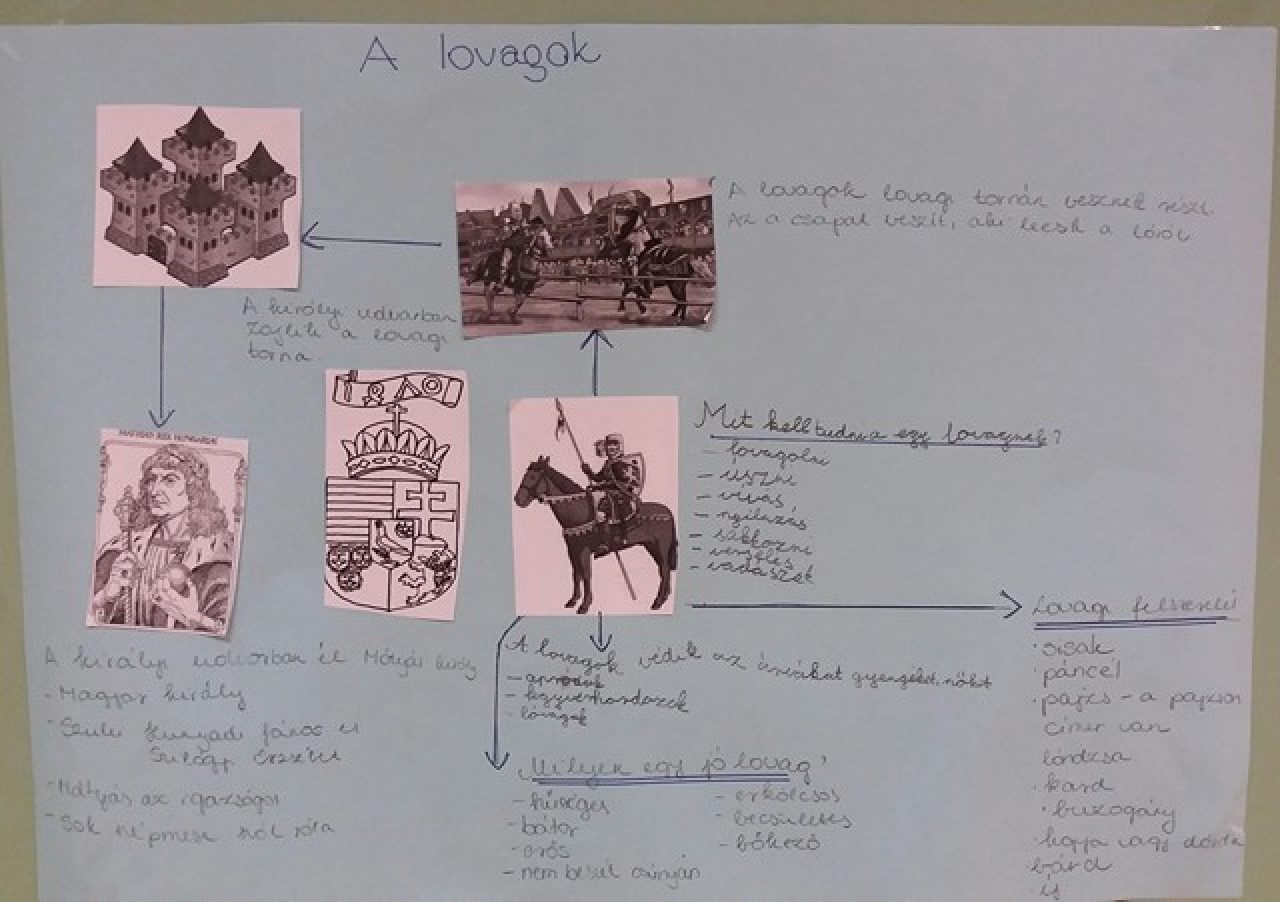 A lovagok
A lovagok lovagi tornán vesznek részt.
Az a csapat veszít, aki leesik a lóról
A királyi udvarban
zajlik a lovagi
torna
MATHIAS REX HUNGARIAE
Mit kell tudnia egy lovagnak?
- lovagolni
- úszni
- vívás
- nyilazás
- sakkozni
- verselés
- vadászat
A lovagok védik az árvákat gyengéket, nőket
- apródok
- fegyverhordozók
- lovagok
Milyen egy jó lovag?
- hűséges
- bátor
- erős
- nem beszél csúnyán
- erkölcsös
- becsületes
- bőkezű
Lovagi felszerelés
· sisak
· páncél
· pajzs - a pajzson
címer van
lándzsa
· kard
· buzogány
· kopja vagy dárda
bárd
íj
A királyi udvarban él Mátyás király
- Magyar király
- Szülei Hunyadi János és
Szilágyi Erzsébet
- Mátyás az igazságos
- Sok népmese szól róla